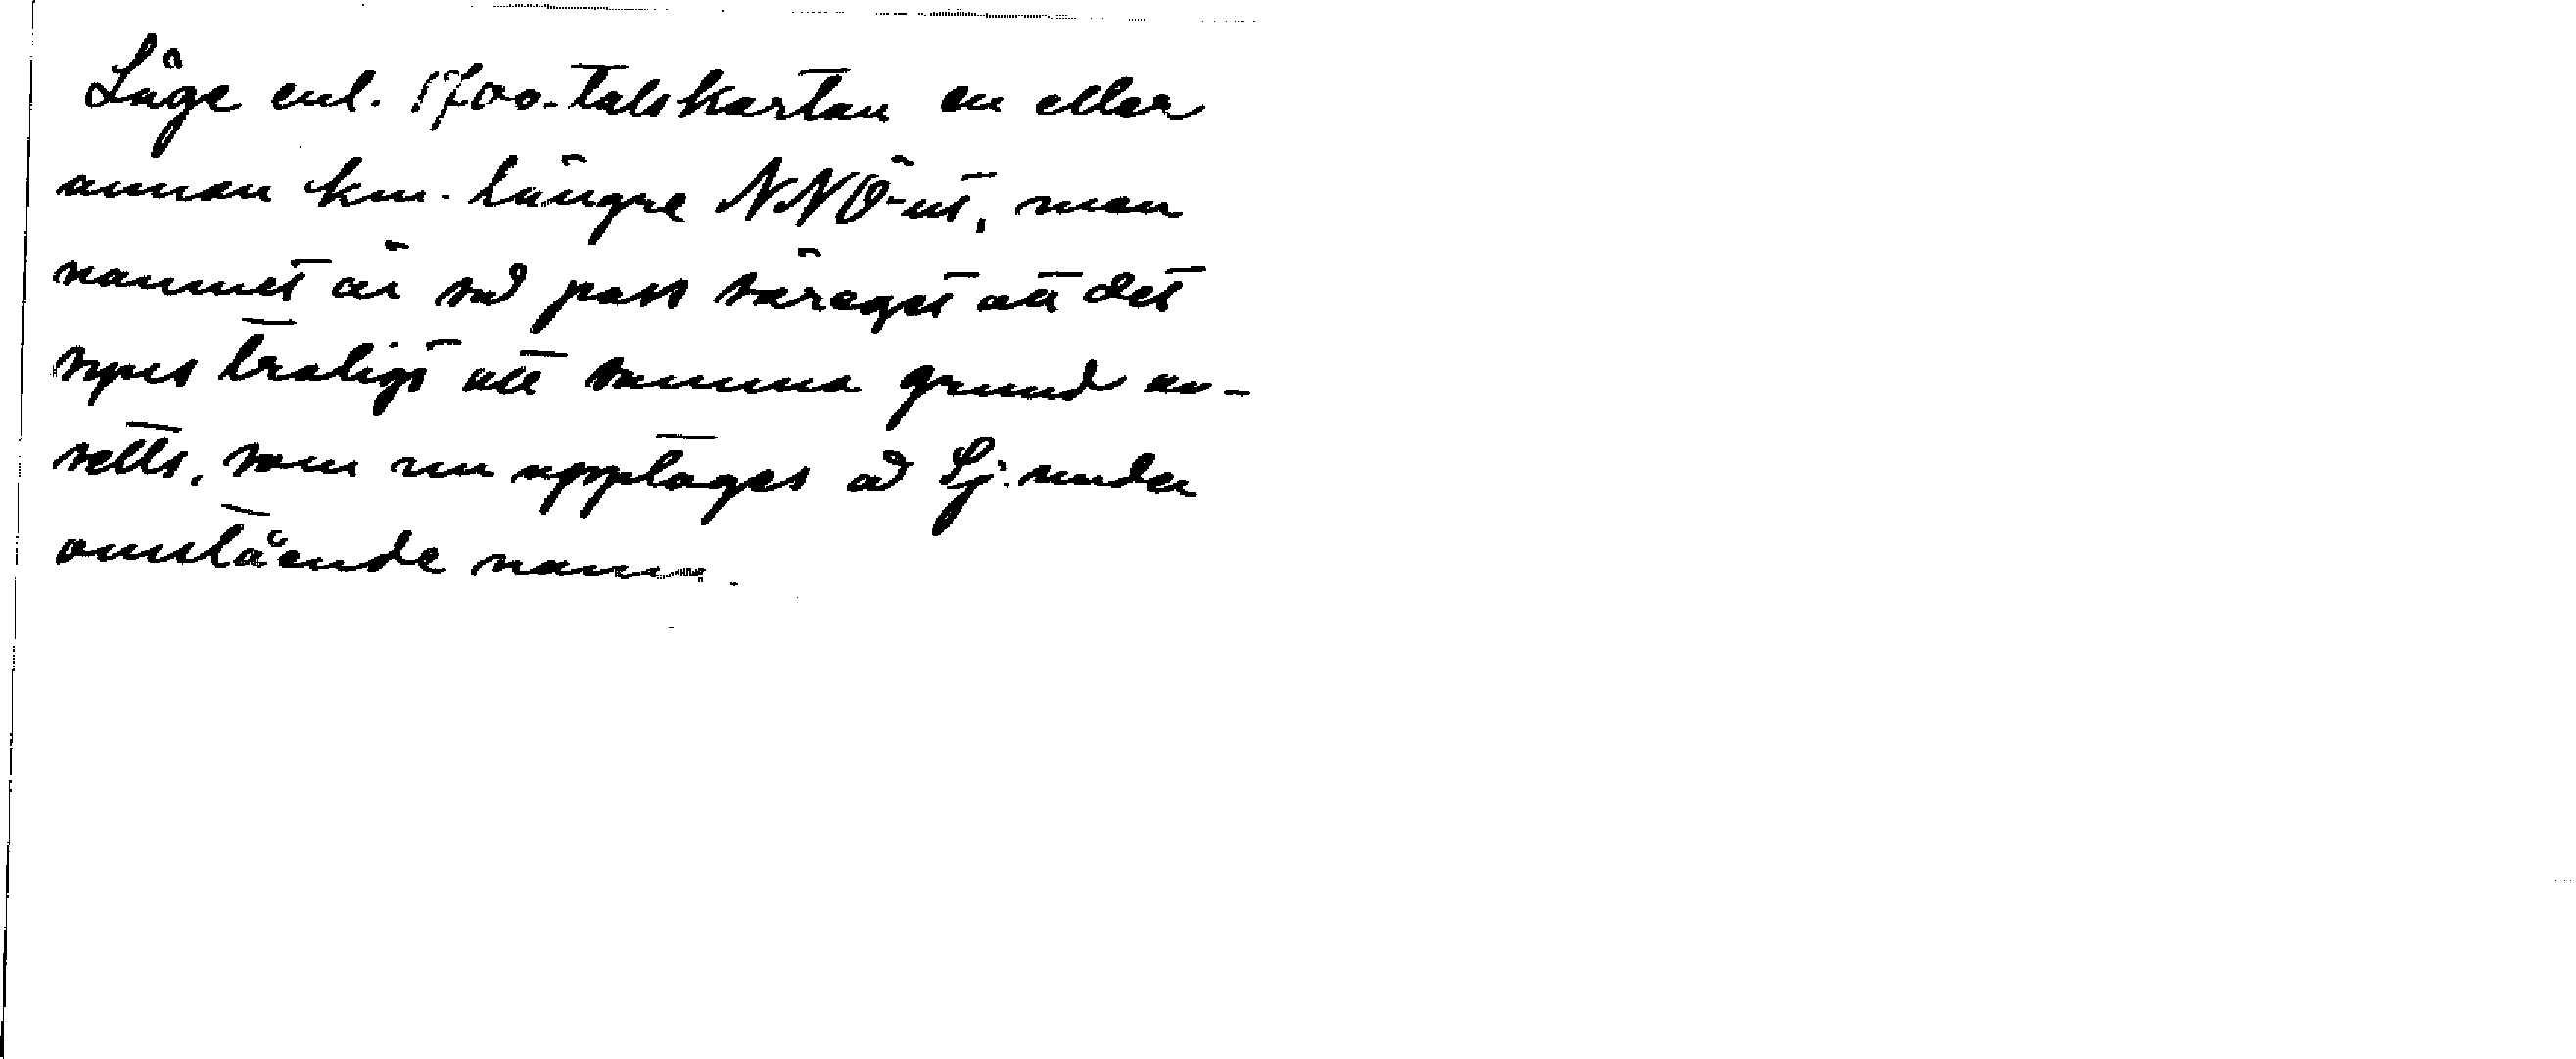 Läge enl. 1700-talskartan en eller
annan km. längre NNÖ-ut, men
namnet är så pass säreget att det
synes troligt att samma grund av-
setts, som nu upptages å Sj. under
omstående namn.